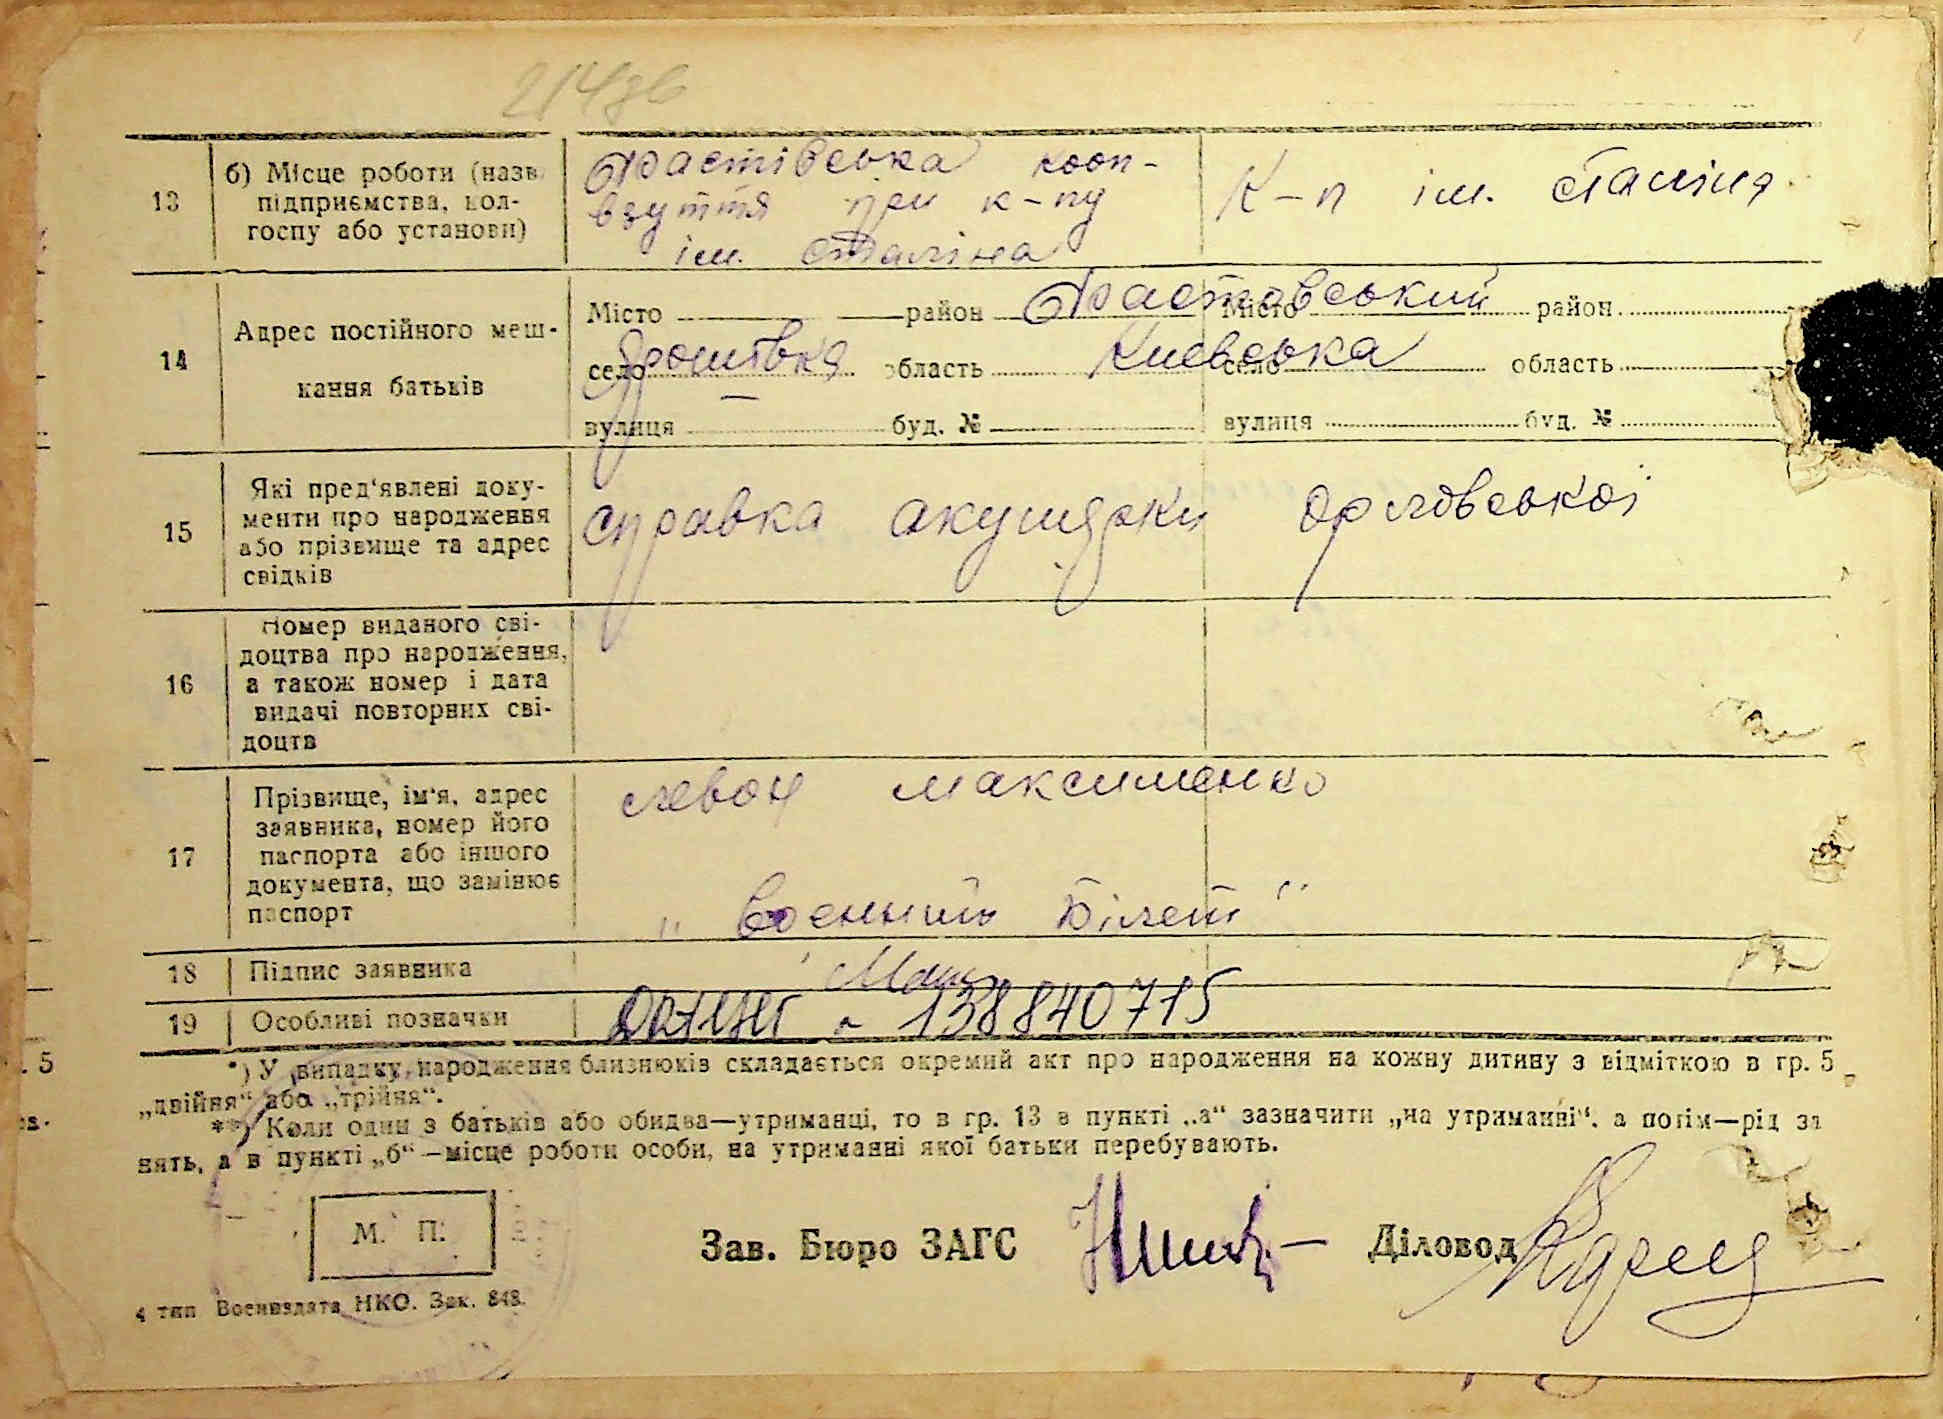 13
б) Місце роботи (назв
підприємства, кол-
госпу або установи)
Фастівська кооп-
взуття при к-пу
ім. Сталіна
К-п ім. Сталіна
14
Адрес постійного меш-
кання батьків
Місто район Фастовський Місто район
село Ярошівка область Киевська село область
вулиця — буд. № вулиця буд. №
15
Які пред'явлені доку-
менти про народження
або прізвище та адрес
свідків
справка акушерки Орловської
16
Номер виданого сві-
доцтва про народження,
а також номер і дата
видачі повторних сві-
доцтв
17
Прізвище, ім'я, адрес
заявника, номер його
паспорта або іншого
документа, що замінює
паспорт
Левон Максименко
„Воєнний білет"
18
Підпис заявника
19
Особливі позначки
138840715
. 5
*) У випадку народження близнюків складається окремий акт про народження на кожну дитину з відміткою в гр. 5
„двійня“ або „трійня“.
**) Коли один з батьків або обидва—утриманці, то в гр. 13 в пункті „а“ зазначити „на утриманні“, а потім—рід за
нять, а в пункті „б“—місце роботи особи, на утриманні якої батьки перебувають.
М. П.
Зав. Бюро ЗАГС
Діловод
4 тип Воениздата НКО. Зак. 848.